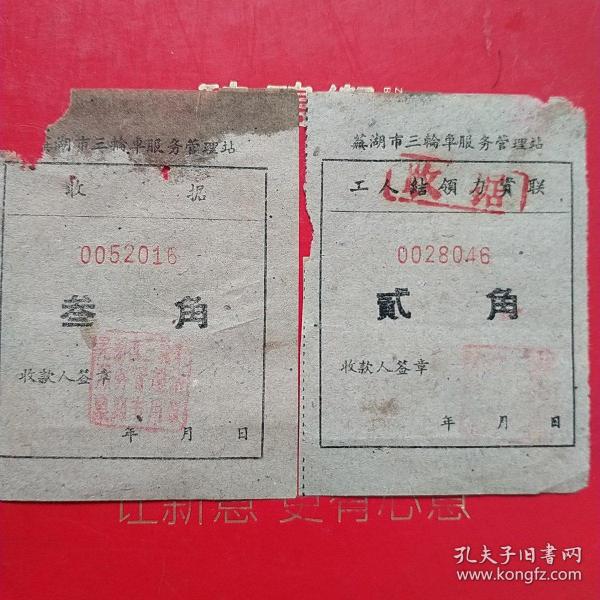 蕪湖市三輪車服务管理站
收 据
0052016
叁 角
收款人签章
年 月 日
蕪湖市三輪車服务管理站
工人結領力資联
收据
0028046
貳 角
收款人签章
年 月 日
让新意 更有心意
孔夫子旧书网
www.kongfz.com